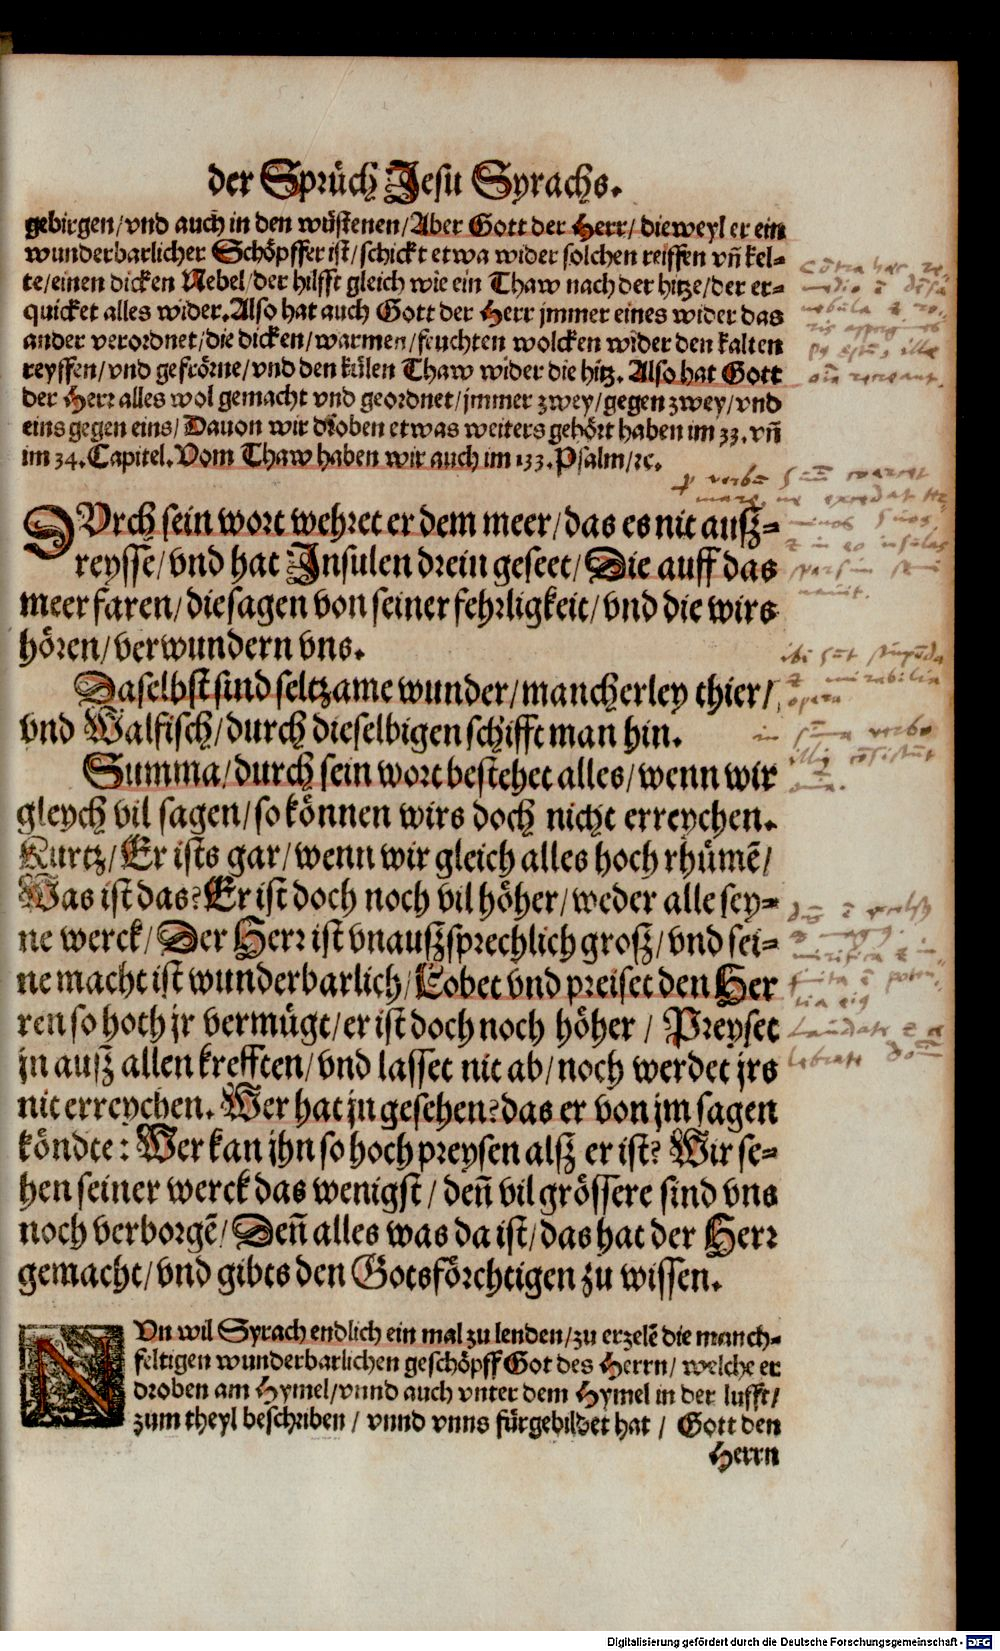 der Sprüch Jesu Syrachs.
gebirgen/vnd auch in den wüstenen/Aber Gott der Herr/dieweyl er ein
wunderbarlicher Schöpffer ist/schickt etwa wider solchen reiffen vñ kel-
te/einen dicken Nebel/der hilfft gleich wie ein Thaw nach der hitze/der er-
quicket alles wider. Also hat auch Gott der Herr jmmer eines wider das
ander verordnet/die dicken/warmen/feuchten wolcken wider den kalten
reyffen/vnd gefrörne/vnd den külen Thaw wider die hitz. Also hat Gott
der Herr alles wol gemacht vnd geordnet/jmmer zwey/gegen zwey/vnd
eins gegen eins/Dauon wir droben etwas weiters gehört haben im 33.vñ
im 34.Capitel.Vom Thaw haben wir auch im 133.Psalm/ꝛc.
DVrch sein wort wehret er dem meer/das es nit ausz-
reysse/vnd hat Insulen drein geseet/Die auff das
meer faren/die sagen von seiner fehrligkeit/vnd die wirs
hören/verwundern vns.
Daselbst sind seltzame wunder/mancherley thier/
vnd Walfisch/durch dieselbigen schifft man hin.
Summa/durch sein wort bestehet alles/wenn wir
gleych vil sagen/so können wirs doch nicht erreychen.
Kurtz/Er ists gar/wenn wir gleich alles hoch rhümẽ/
Was ist das? Er ist doch noch vil höher/weder alle sey-
ne werck/Der Herr ist vnauszsprechlich grosz/vnd sei-
ne macht ist wunderbarlich/Lobet vnd preiset den Her
ren so hoch jr vermügt/er ist doch noch höher / Preyset
jn ausz allen krefften/vnd lasset nit ab/noch werdet jrs
nit erreychen. Wer hat jn gesehen? das er von jm sagen
köndte: Wer kan jhn so hoch preysen alsz er ist? Wir se-
hen seiner werck das wenigst/deñ vil grössere sind vns
noch verborgẽ/Deñ alles was da ist/das hat der Herr
gemacht/vnd gibts den Gotsförchtigen zu wissen.
NVn wil Syrach endlich ein mal zu lenden/zu erzelẽ die manch-
feltigen wunderbarlichen geschöpff Got des Herrn/ welche er
droben am Hymel/vnnd auch vnter dem Hymel in der lufft/
zum theyl beschriben / vnnd vnns fürgebildet hat / Gott den
Herrn
Cõtra hæc re-
nebula et ro-
oĩa recreant.
ne excedat ter-
minos suos,
et in eo insulas
ibi sũt stupẽda
et mirabilia
opera
in sũma verbo
cõsistũt
oĩa.
mirifica et in-
finita ẽ poten-
tia
Laudate et ce
lebrate
Digitalisierung gefördert durch die Deutsche Forschungsgemeinschaft - DFG